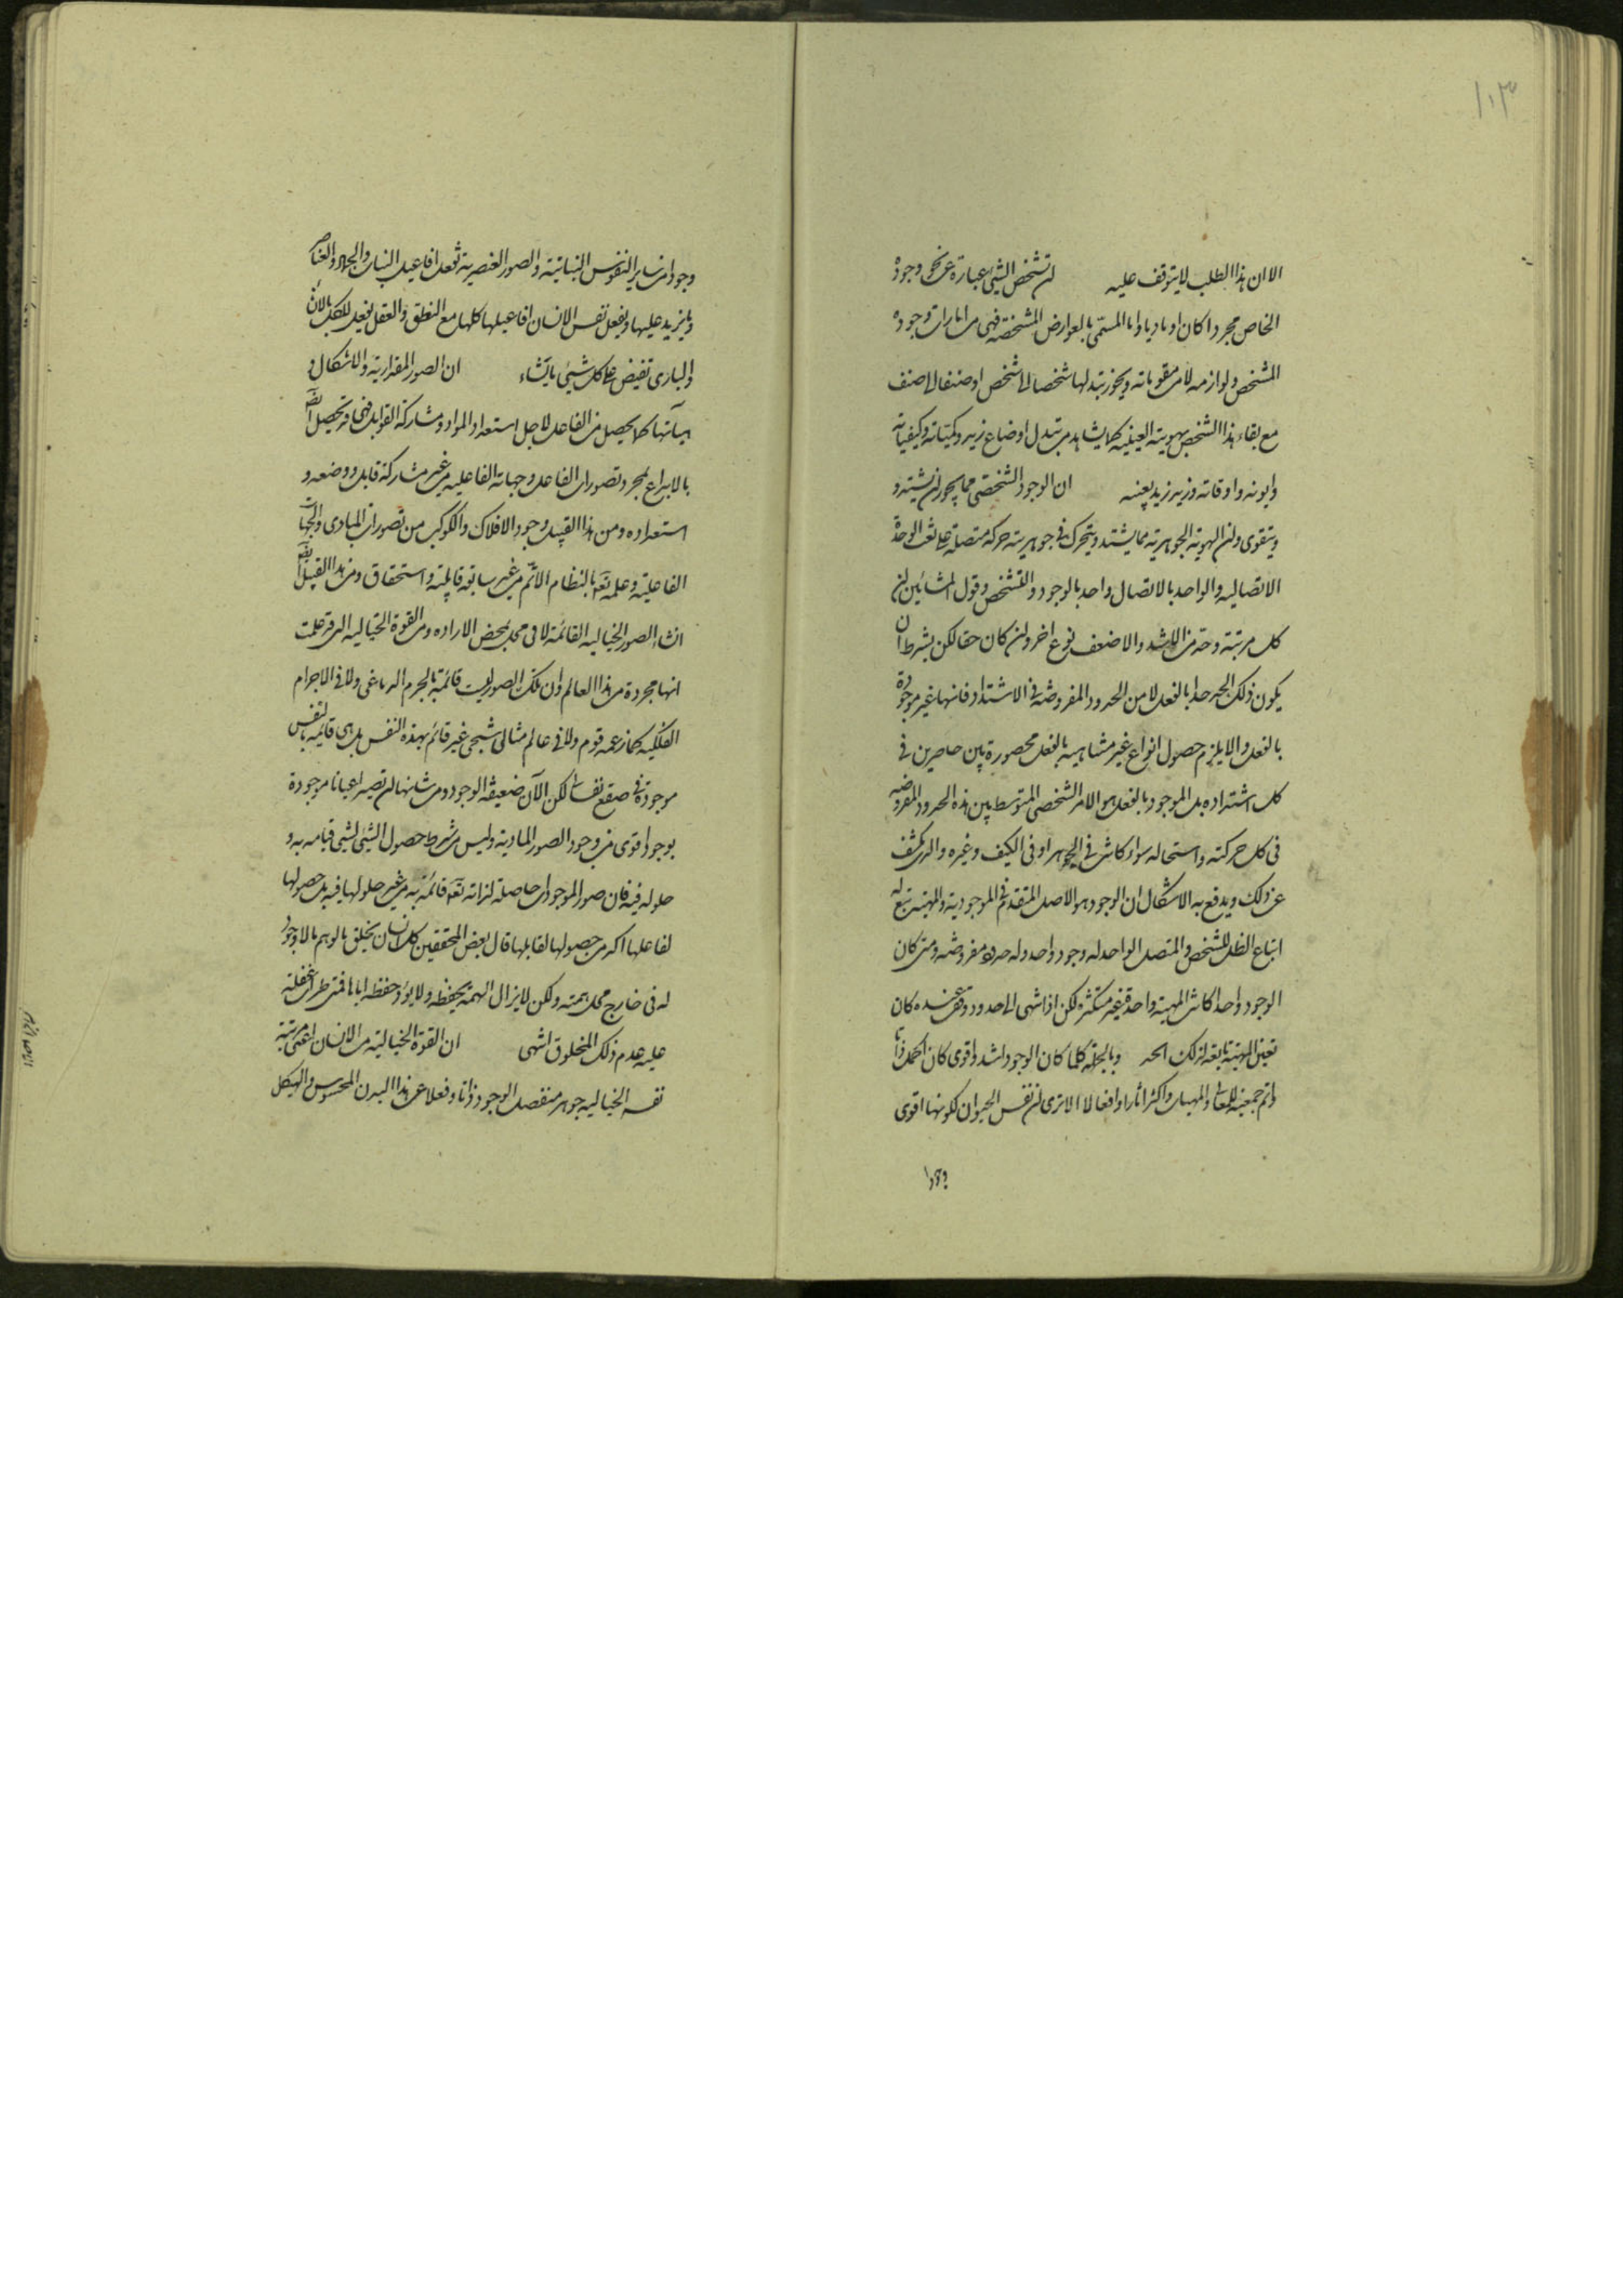 ١٠٣
الا ان هذا المطلب لا يتوقف عليه ان تشخص الشيئ عبارة عن نحو وجوده
الخاص مجردا كان او ماديا و اما المسمّى بالعوارض المشخصة فهى من امارات وجوده
المشخص و لوازمه لا من مقوماته و يجوز تبدلها شخصا الى شخص او صنفا الى صنف
مع بقاء هذا الشخص بهويته العينيه كما يشاهد من تبدل اوضاع زيد و كمياته و كيفياته
و ايونه و اوقاته و زيد زيد بعينه ان الوجود الشخصى مما يجوز ان يشتد و
و يتقوى و ان الهوية الجوهرية مما يشتد و يتحرك فى جوهريته حركة متصلة على نعت الوحدة
الاتصاليه و الواحد بالاتصال واحد بالوجود و التشخص و قول المشائين ان
كل مرتبة وحد من الاشد و الاضعف نوع اخر و ان كان حقا لكن بشرط ان
يكون ذلك الحد حدا بالفعل لا من الحدود المفروضة فى الاشتداد فانها غير موجودة
بالفعل و الا يلزم حصول انواع غير متناهية بالفعل محصورة بين حاصرين فى
كل اشتداد بل الموجود بالفعل هو الامر الشخصى المتوسط بين هذه الحدود المفروضه
فى كل حركته و استحاله سواء كانت فى الجوهر او فى الكيف و غيره و الذى يكشف
عن ذلك و يدفع به الاشكال ان الوجود هو الاصل المتقدم فى الموجودية و المهية تتبع له
اتباع الظل للشخص و المتصل الواحد له وجود واحد و له حدود مفروضه و متى كان
الوجود واحدا كانت المهية واحدة غير متكثرة لكن اذا انتهى الى حدود وقف عنده كان
تعين المهية تابعة لذلك الحد و بالجملة كلما كان الوجود اشد و اقوى كان اكمل ذاتا
و اتم جمعية للمعانى و المهيات و اكثر اثارا و افعالا الا ترى ان نفس الحيوان لكونها اقوى
وجودا
وجودا من ساير النفوس النباتية و الصور العنصرية تفعل افاعيل النبات و الجماد و العناصر
و ما يزيد عليها و يفعل نفس الانسان افاعيلها كلها مع النطق و العقل يفعل الكل بالانشاء
و البارى تفيض على كل شيئ ما يشاء ان الصور المقدارية و الاشكال و
هيآتها كما يحصل من الفاعل لاجل استعداد المواد و مشاركة القوابل فهى قد تحصل ايضا
بالابداع بمجرد تصورات الفاعل و جهاته الفاعليه من غير مشاركة قابل و وضعه و
استعداده و من هذا القبيل وجود الافلاك و الكواكب من تصورات المبادى و الجهات
الفاعلية و علمه تعه بالنظام الاتم من غير سابقة قابلية و استحقاق و من هذا القبيل ايضا
انشاء الصور الخياليه القائمة لا فى محل بمحض الاراده من القوة الخياليه التى قد علمت
انها مجردة من هذا العالم و ان تلك الصور ليست قائمة بالجرم الدماغى و لا فى الاجرام
الفلكيه كما زعمه قوم و لا فى عالم مثالى شبحى غير قائم بهذه النفس بل هى قايمه بالنفس
موجودة فى صقع نفسانى لكن الآن ضعيفة الوجود و من شانها ان تصير اعيانا موجودة
بوجود اقوى من وجود الصور المادية و ليس من شرط حصول الشيئ لشيئ قيامه به و
حلوله فيه فان صور الموجودات حاصلة لذاته تعه قائمة به من غير حلولها فيه بل حصولها
لفاعلها اكد من حصولها لقابلها قال بعض المحققين كل انسان يخلق بالوهم ما لا وجود
له فى خارج محل همته و لكن لا يزال الهمة يحفظه و لا يؤدها حفظه اياها فمتى طرات غفلة
عليه عدم ذلك المخلوق انتهى ان القوة الخيالية من الانسان اعنى مرتبة
نفسه الخياليه جوهر منفصل الوجود ذاتا و فعلا عن هذا البدن المحسوس و الهيكل